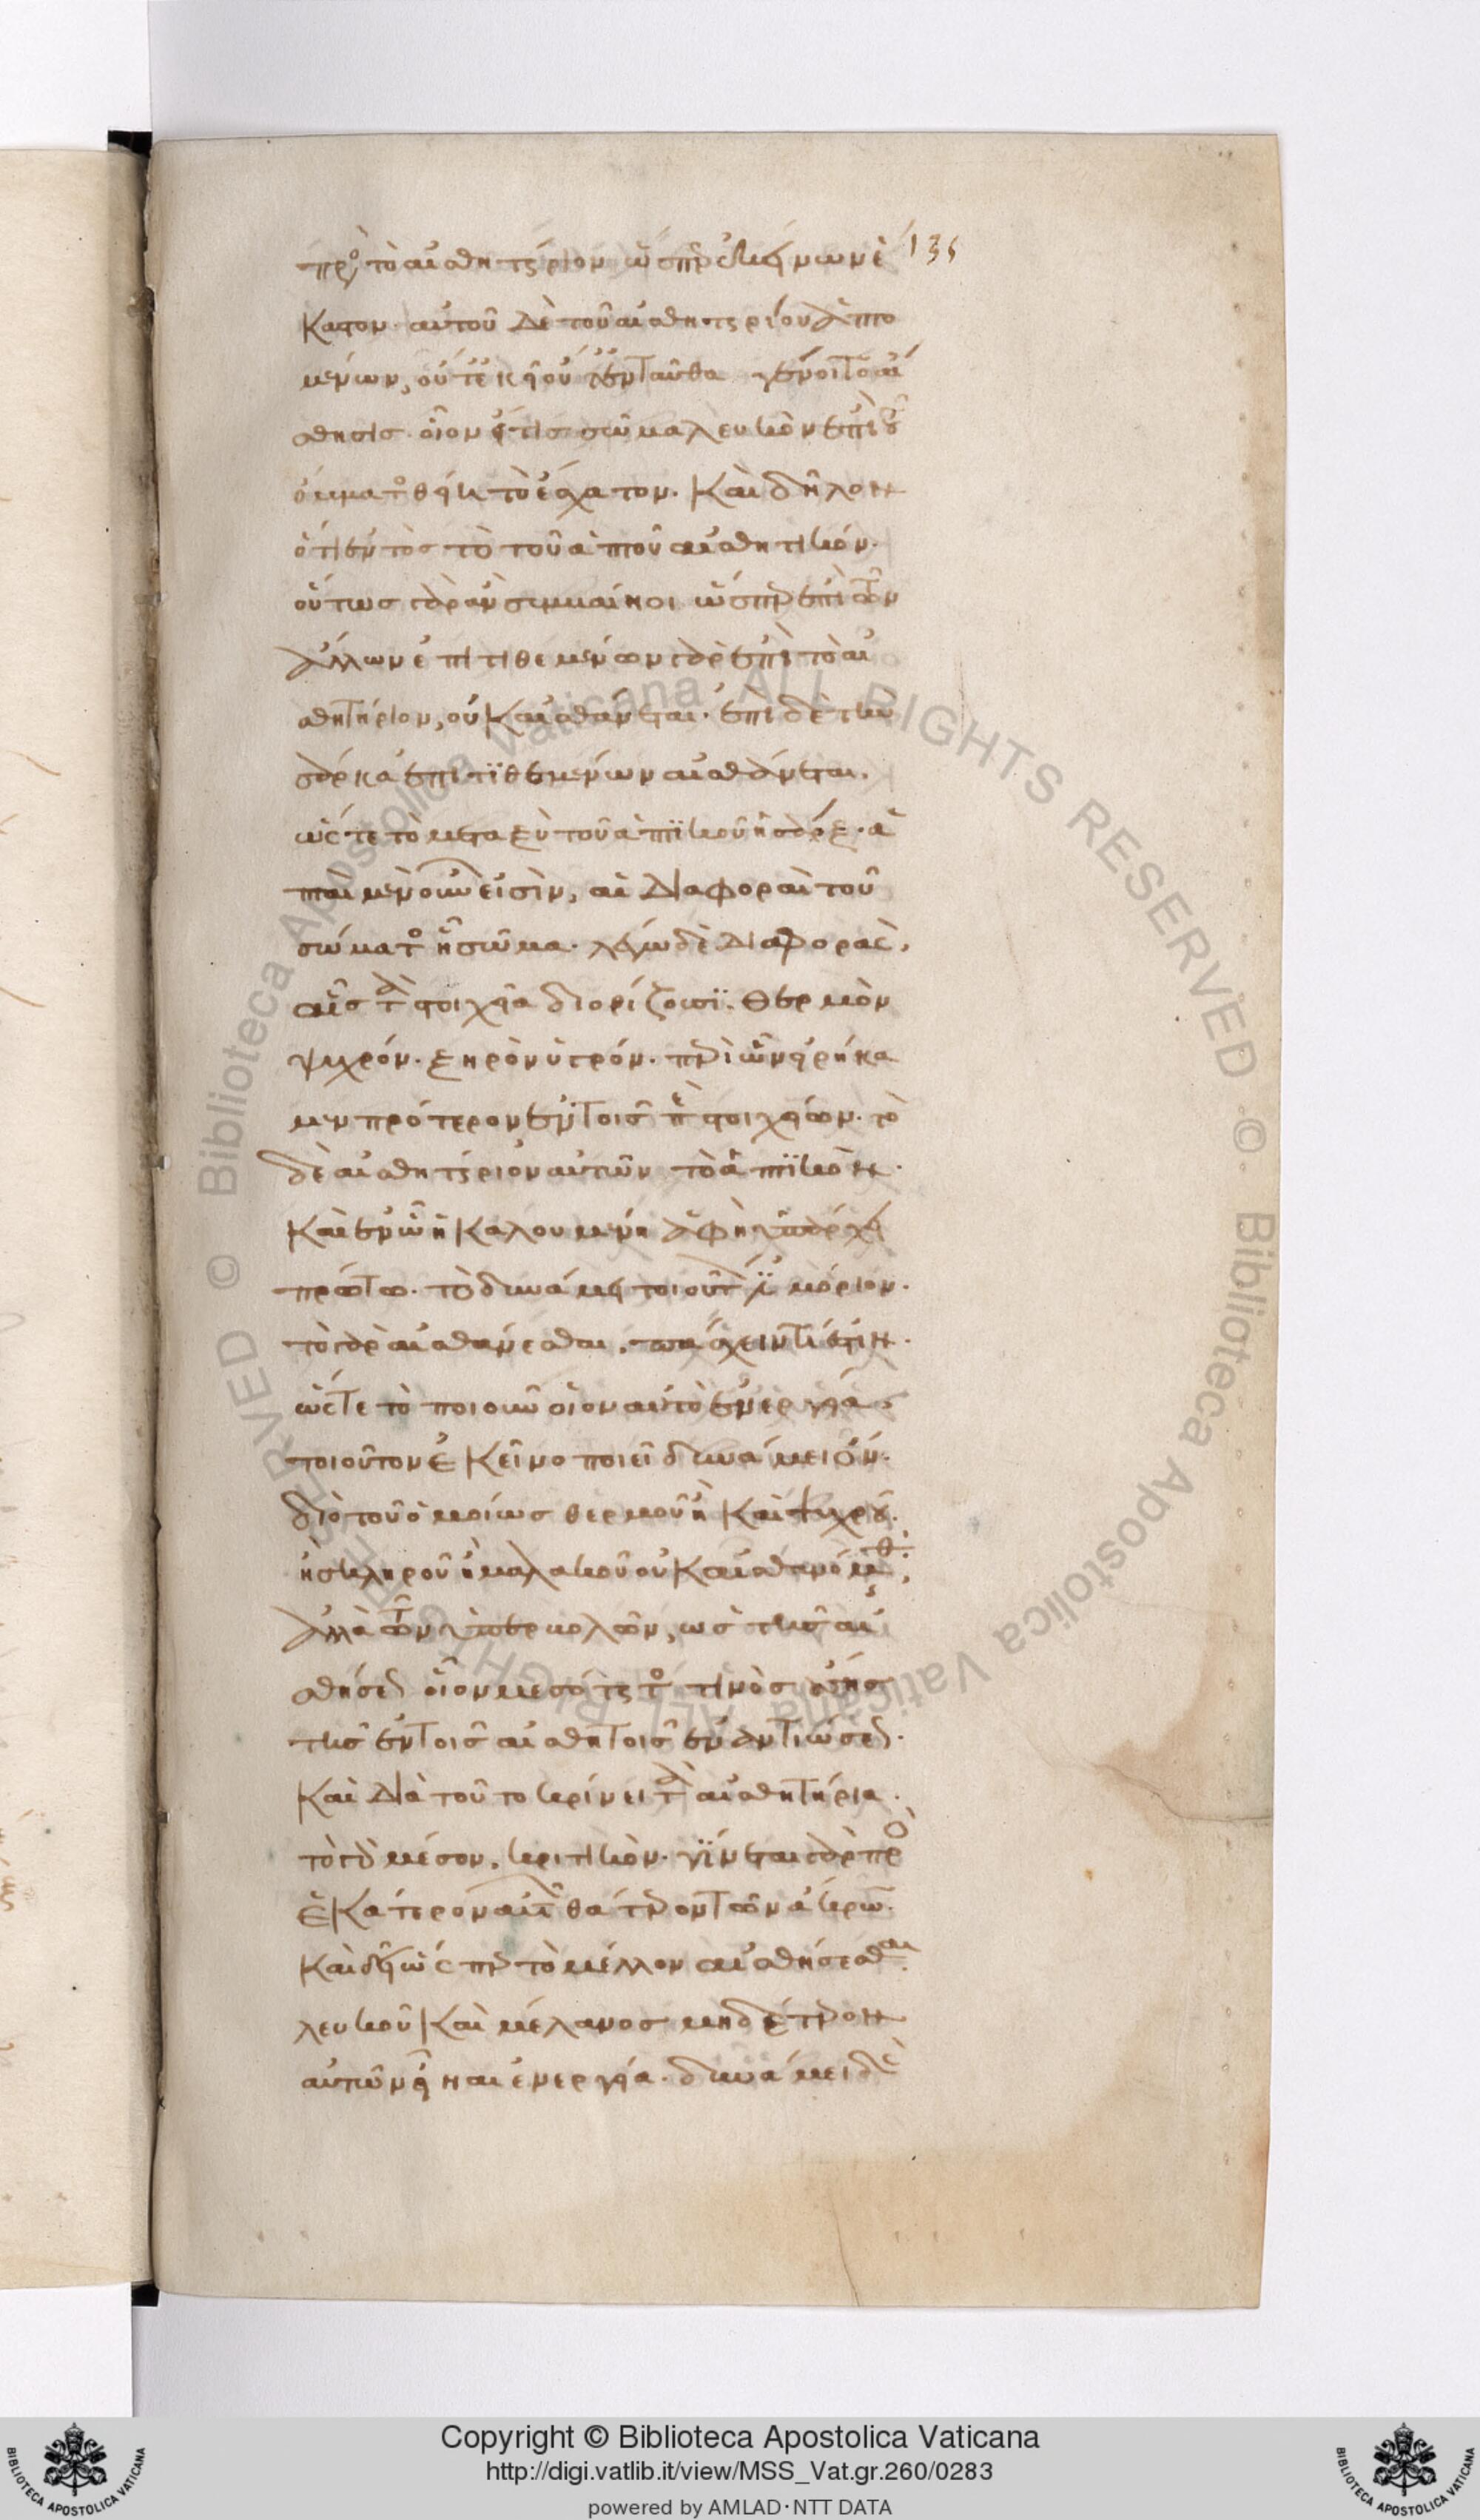 πρὸς τὸ αἰσθητήριον ὥσπερ ἐκείνων ἑ 135
καστον. αὐτοῦ δὲ τοῦ αἰσθητηρίου ἁπτο
μένων, οὔτε ἐκεῖ οὔτ' ἐνταῦθα γένοιτο αἴ
σθησις. οἷον εἴ τις σῶμα λευκὸν ἐπὶ τοῦ
ὄμματος θείη τὸ ἔσχατον. καὶ δῆλον
ὅτι ἐντὸς τὸ τοῦ ἁπτοῦ αἰσθητικόν.
οὕτως γὰρ ἂν συμβαίνοι ὥσπερ ἐπὶ τῶν
ἄλλων ἐπιτιθεμένων γὰρ ἐπὶ τὸ αἰ
σθητήριον, οὐκ αἰσθάνεται. ἐπὶ δὲ τὴν
σάρκα ἐπιτιθεμένων αἰσθάνεται,
ὥστε τὸ μεταξὺ τοῦ ἁπτικοῦ ἡ σάρξ. ἁ
πταὶ μὲν οὖν εἰσὶν, αἱ διαφοραὶ τοῦ
σώματος ἧ σῶμα. λέγω δὲ διαφορὰς,
αἷς τὰ στοιχεῖα διορίζουσι. θερμὸν
ψυχρόν. ξηρὸν ὑγρόν. περὶ ὧν εἰρήκα
μεν πρότερον ἐν τοῖς περὶ στοιχείων. τὸ
δὲ αἰσθητήριον αὐτῶν τὸ ἁπτικὸν.
καὶ ἐν ᾧ ἡ καλουμένη ἁφὴ ὑπάρχει
πρώτῳ. τὸ δυνάμει τοιοῦτόν ἐστι μόριον.
τὸ γὰρ αἰσθάνεσθαι, πάσχειν τί ἐστιν.
ὥστε τὸ ποιοῦν οἷον αὐτὸ ἐνεργείᾳ,
τοιοῦτον ἐκεῖνο ποιεῖ δυνάμει ὄν.
διὸ τοῦ ὁμοίως θερμοῦ ἢ καὶ ψυχροῦ.
ἢ σκληροῦ ἢ μαλακοῦ οὐκ αἰσθανόμεθα,
ἀλλὰ τῶν ὑπερβολῶν, ὡς τῆς αἰ
σθήσεως οἷον μεσότητος τινὸς οὔσης
τῆς ἐν τοῖς αἰσθητοῖς ἐναντιώσεως.
καὶ διὰ τοῦτο κρίνει τὰ αἰσθητήρια.
τὸ γὰρ μέσον, κριτικόν. γίνεται γὰρ πρὸς
ἑκάτερον αὐτῶν θάτερον τῶν ἄκρων.
καὶ δεῖ ὥσπερ τὸ μέλλον αἰσθήσεσθαι
λευκοῦ καὶ μέλανος μηδέτερον
αὐτῶν εἶναι ἐνεργείᾳ. δυνάμει δὲ
Copyright © Biblioteca Apostolica Vaticana
http://digi.vatlib.it/view/MSS_Vat.gr.260/0283
powered by AMLAD·NTT DATA
© Biblioteca Apostolica Vaticana ALL RIGHTS RESERVED
© Biblioteca Apostolica Vaticana ALL RIGHTS RESERVED
BIBLIOTECA APOSTOLICA VATICANA
BIBLIOTECA APOSTOLICA VATICANA